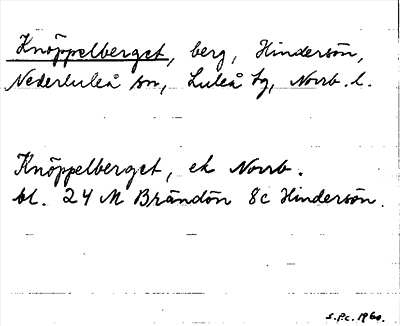 Knöppelberget, berg, Hindersön,
Nederluleå sn, Luleå tg, Norrb. l.
Knöppelberget, ek Norrb.
bl. 24 M Brändön 8c Hindersön.
S.P.c. 1960.